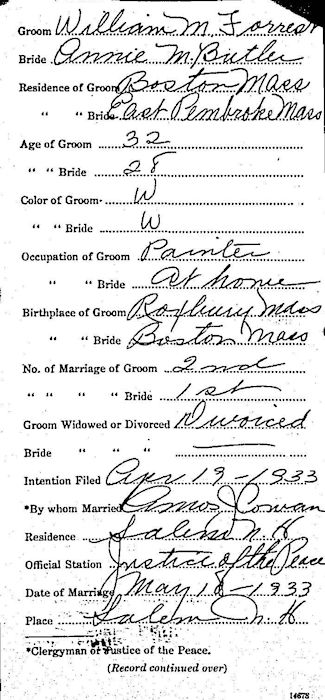 Groom William M. Forrest
Bride Annie M. Butler
Residence of Groom Boston Mass
" " Bride East Pembroke Mass
Age of Groom 32
" " Bride 28
Color of Groom W
" " Bride W
Occupation of Groom Painter
" " Bride At home
Birthplace of Groom Roxbury Mass
" " Bride Boston Mass
No. of Marriage of Groom 2nd
" " " " Bride 1st
Groom Widowed or Divorced Divorced
Bride " " "
Intention Filed Apr 19-1933
*By whom Married Amos J Cowan
Residence Salem N. H
Official Station Justice of the Peace
Date of Marriage May 18-1933
Place Salem N. H
*Clergyman or Justice of the Peace.
(Record continued over)
14678